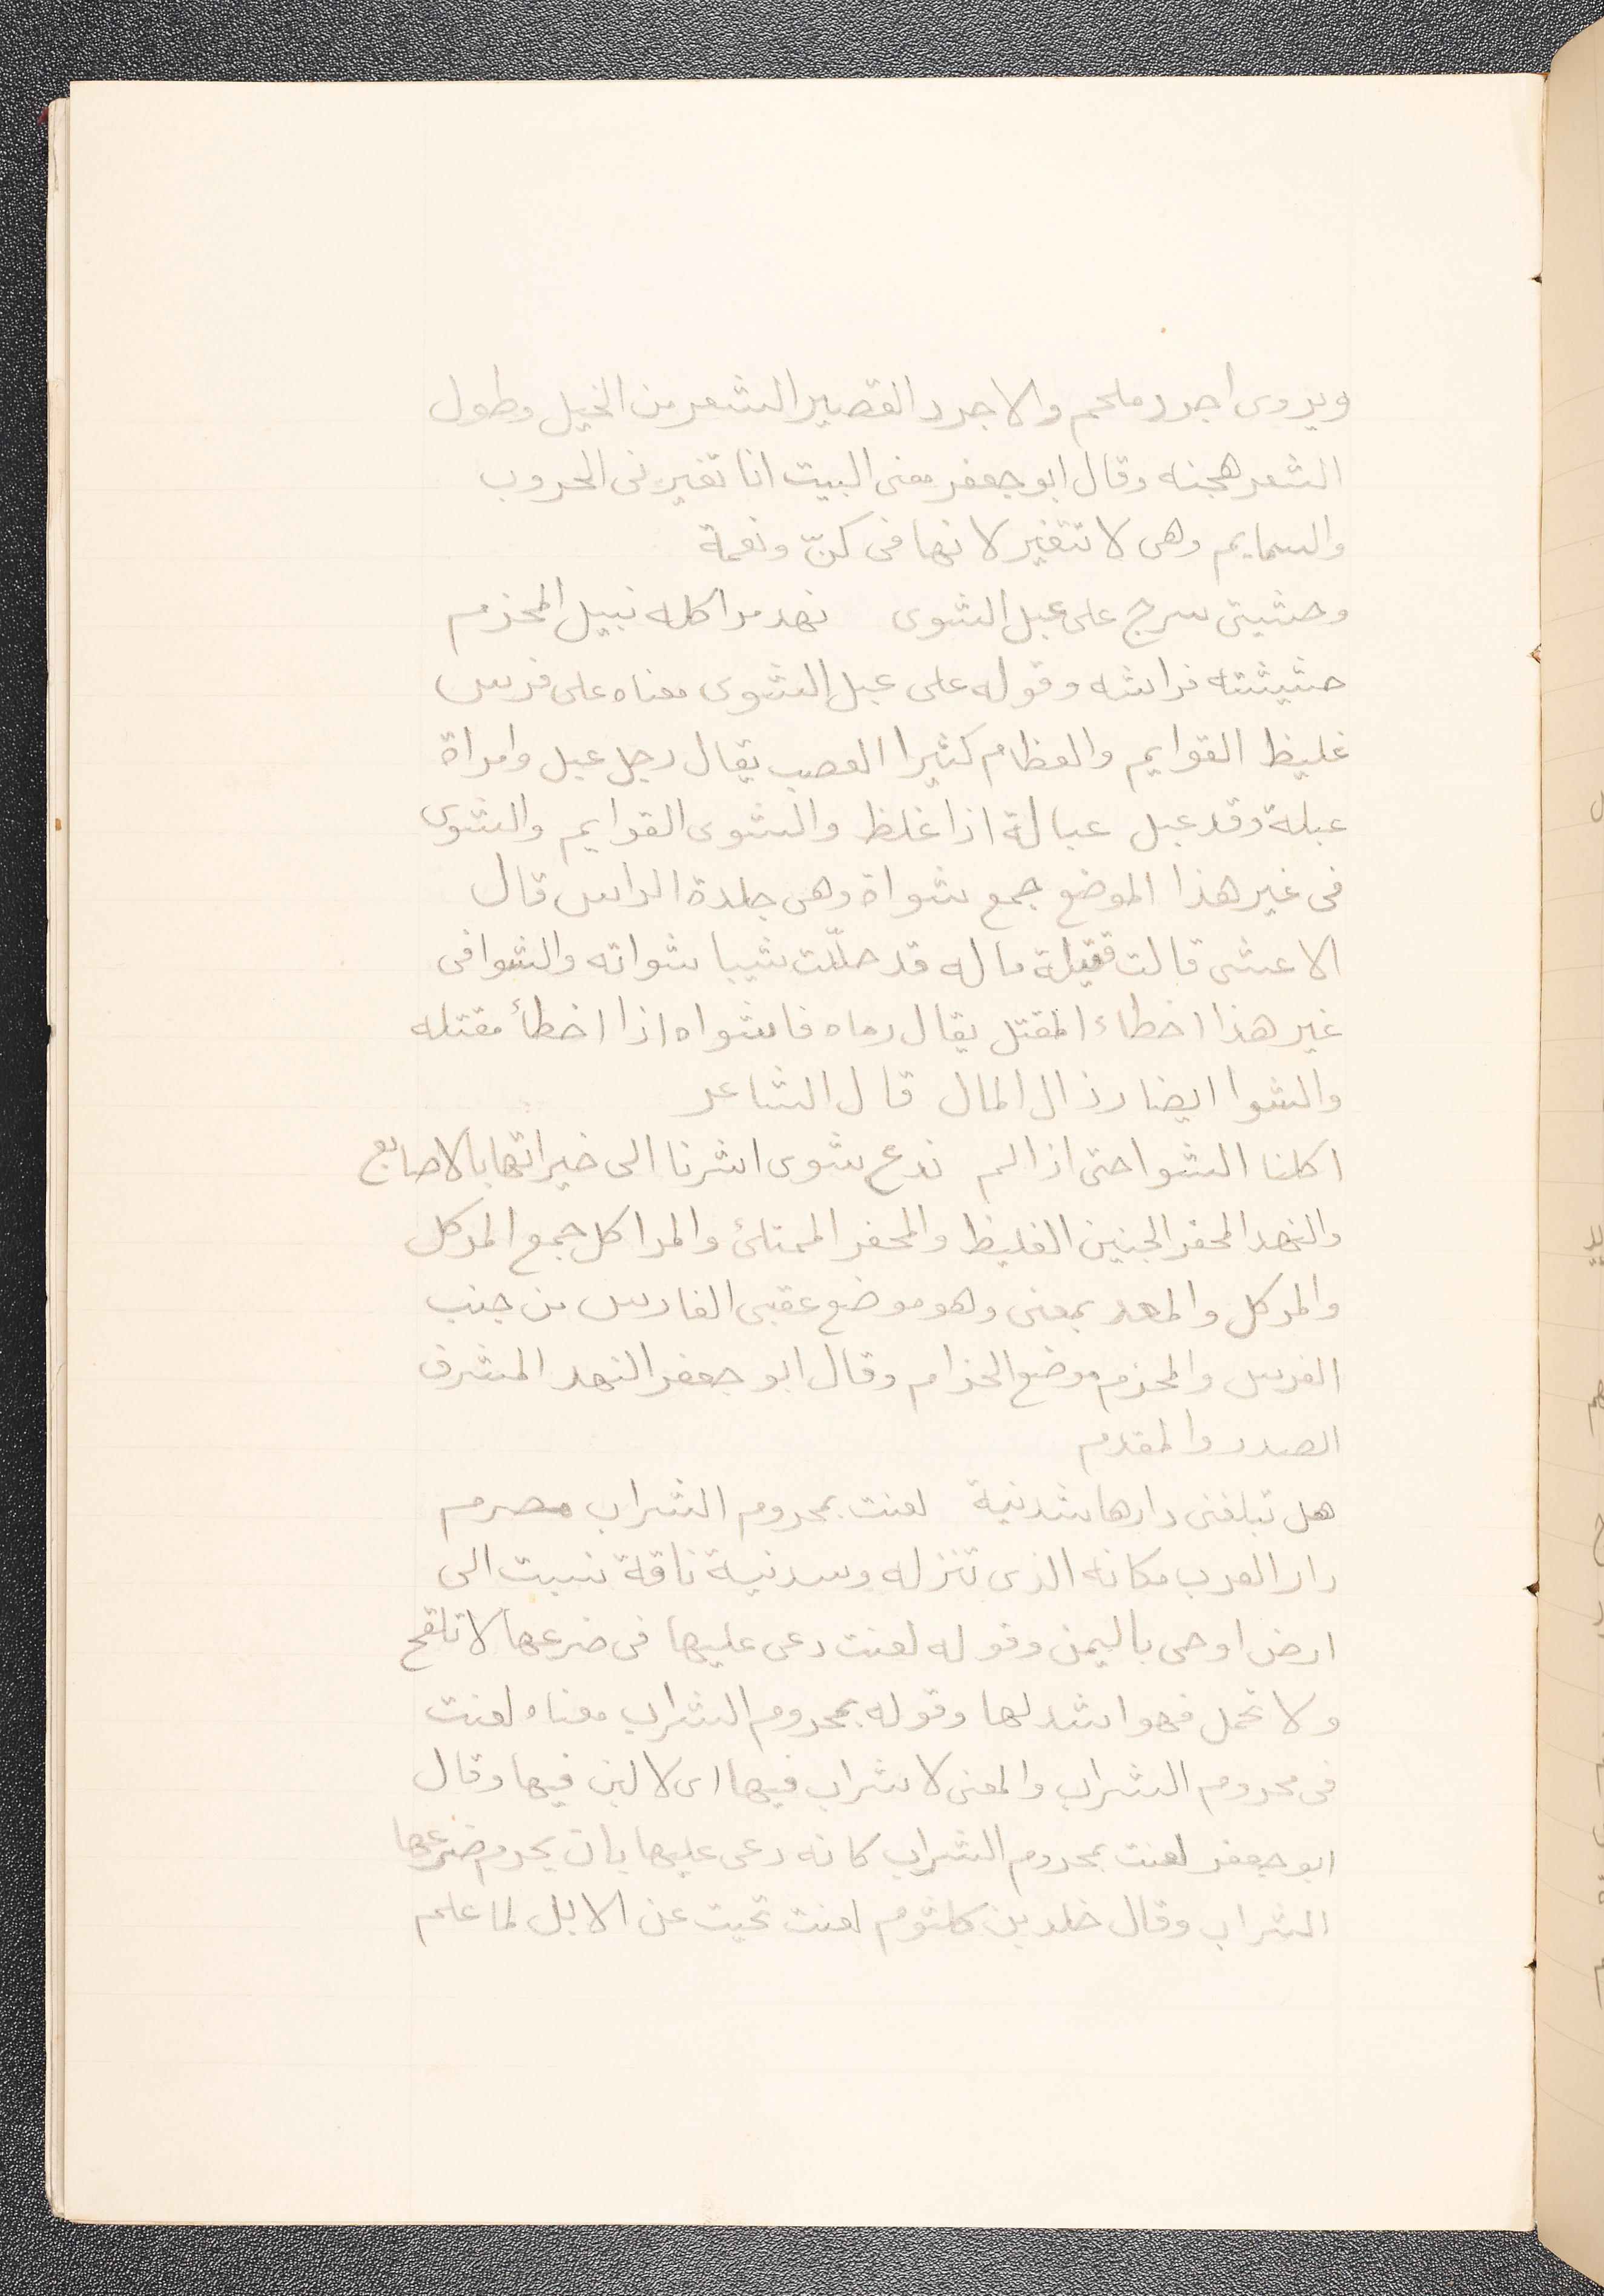 ويروى اجرد ملحم والاجرد القصير الشعر من الخيل وطول
الشعر هجنه وقال ابو جعفر معنى البيت انا تغير فى الحروب
والسمايم وهى لا تتغير لانها فى كنّ ونعمة
وحشيتى سرج على عبل الشوى نهد مراكله نبيل المحزم
حشيشته فراشه وقوله على عبل الشوى معناه على فرس
غليظ القوايم والعظام كثيرا العصب يقال رجل عبل وامراة
عبلة وقد عبل عبالة اذا غلظ والشوى القوايم والشوى
فى غير هذا الموضع جمع شواة وهى جلدة الراس قال
الاعشى قالت قتيلة ماله قد حلّلت شيبا شواته والشوا فى
غير هذا اخطاء المقتل يقال رماه فاشواه اذا اخطأ مقتله
والشوا ايضا رذال المال قال الشاعر
اكلنا الشوا حتى اذا لم ندع شوى اشرنا الى خيراتها بالاصابع
والنهد المحفر الجنبين الغليظ والمحفر الممتلئ والمراكل جمع المركل
والمركل والمعد بمعنى وهو موضع عقبى الفارس من جنب
الفرس والمحزم موضع الحزام وقال ابو جعفر النهد المشرف
الصدر والمقدم
هل تبلغنى دارها شدنية لعنت بمحروم الشراب مصرم
دار العرب مكانه الذى تنزله وسدنية ناقة نسبت الى
ارض اوحى باليمن وقوله لعنت دعى عليها فى ضرعها لا تلقح
ولا تحمل فهو اشد لها وقوله بمحروم الشراب معناه لعنت
فى محروم الشراب والمعنى لا شراب فيها اى لا لبن فيها وقال
ابو جعفر لعنت بمحروم الشراب كانه دعى عليها بان يحرم ضرعها
الشراب وقال خلد بن كلثوم لعنت نحيت عن الابل لما علم